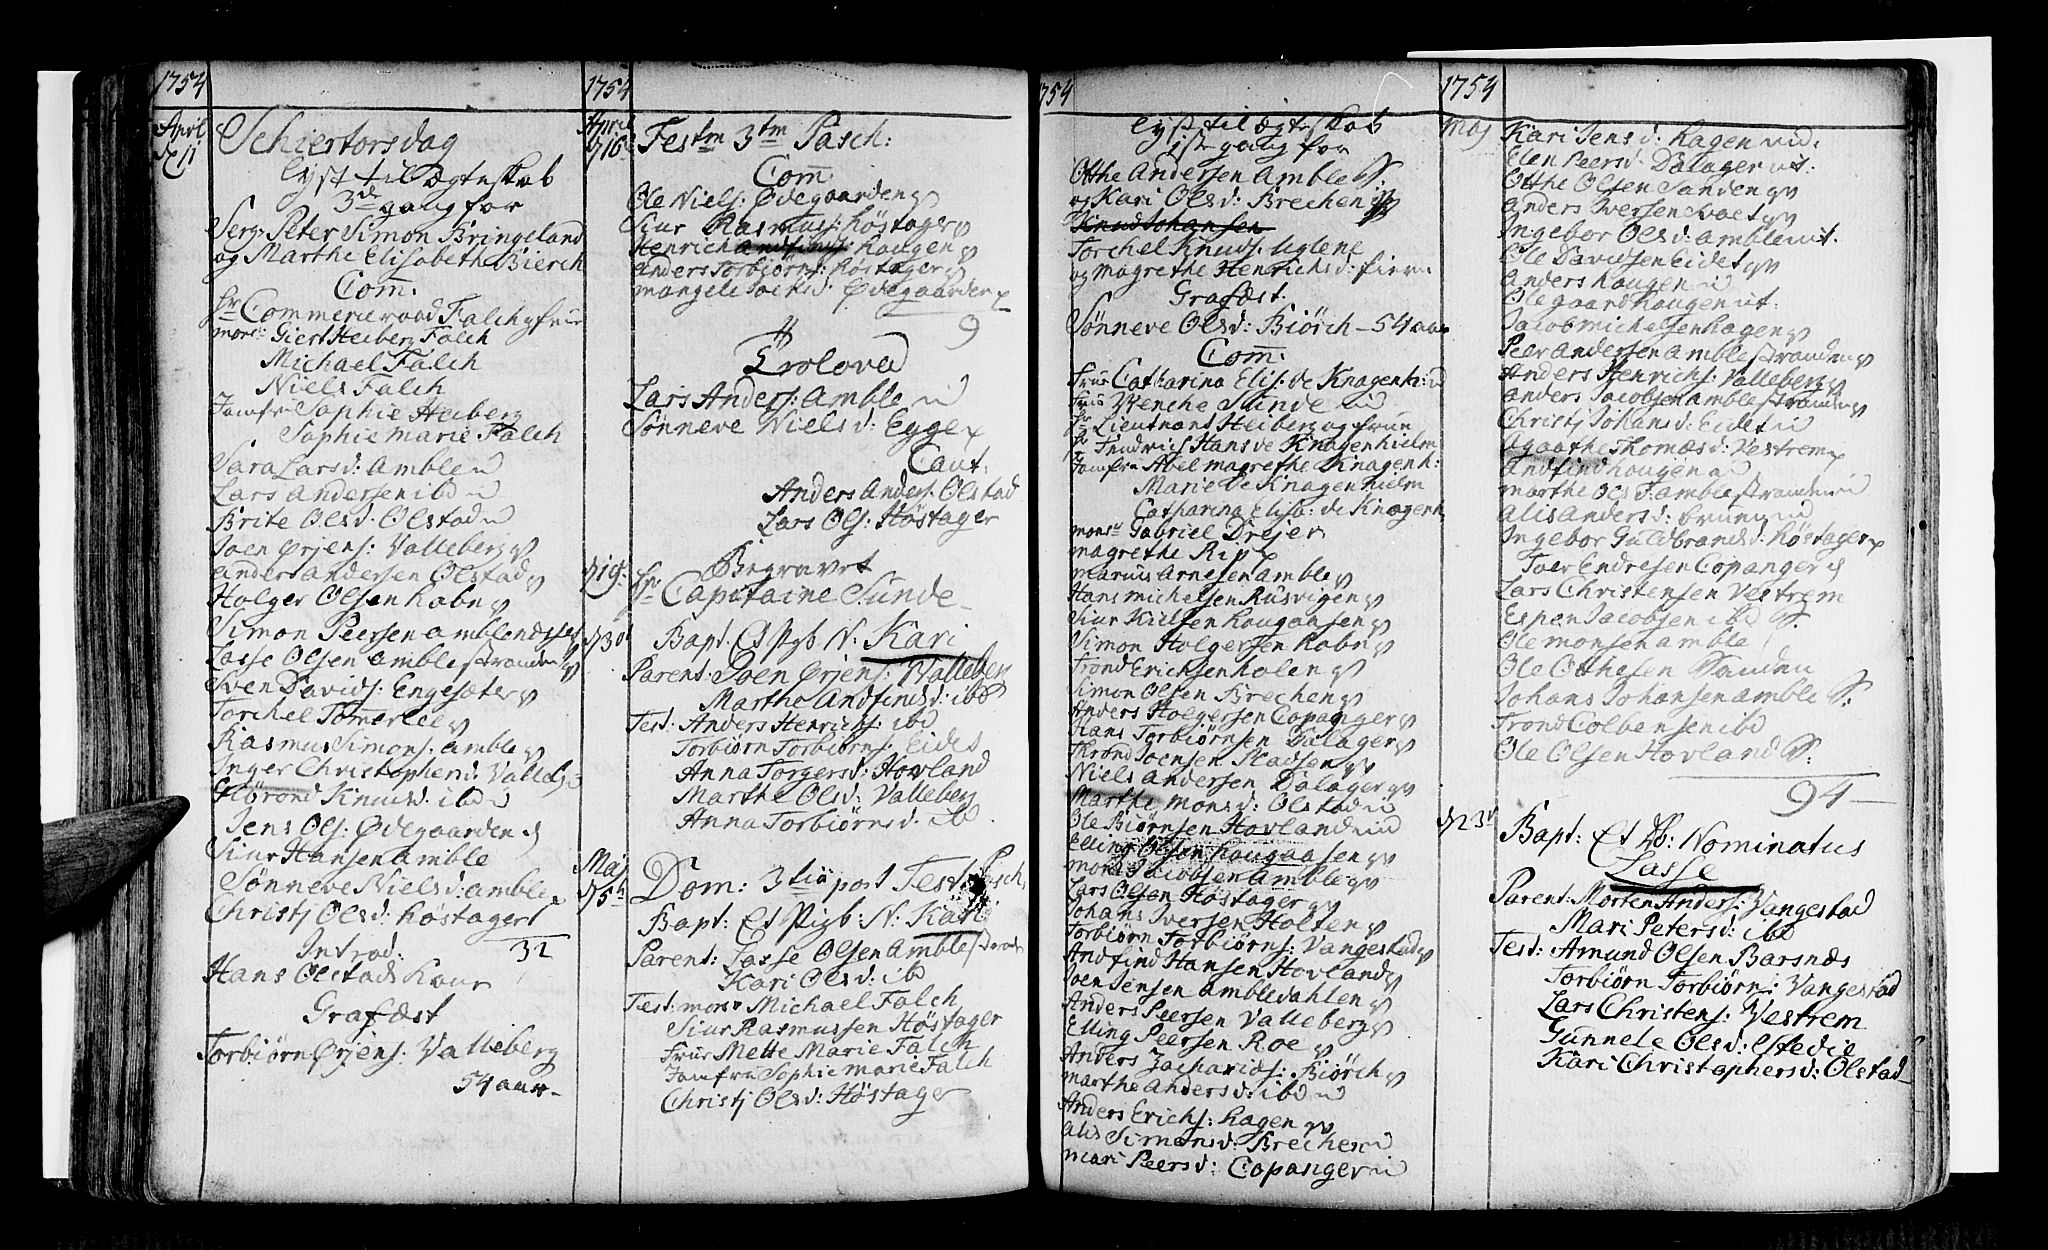 1754
April
d 11
Schiertorsdag
Lyst til Ægteskab
3de gang for
Serg: Peter Simon Bringeland
og Marthe Elisabeth Bierch
Com:
Hr Commerceraad Falch & frue
mons: Giert Heiberg Falch
Michael Falch
Niels Falch
Jomfru Sophie Heiberg
Sophie Marie Falch
Sara Larsd: Amble
Lars Andersen ibd
Brite Olsd: Olstad
Joen Ørjens: Valleberg
Anders Andersen Olstad
Holger Olsen
Simon Peersen Amble
Lasse Olsen Amblestranden
Sven Davids: Engesæter
Torchel
Rasmus Simons: Amble
Inger Christophersd:
Knudsd: ibd
Jens Ols: Ødegaarden
Siur Hansen Amble
Sønneve Nielsd: Amble
Christj Olsd: Høstager
32
Introd:
Hans Olstads Kone
Grafæst
Torbiørn Ørjens: Valleberg
54 aar
1754
April
d 16
Festm 3tm Pasch:
Com
Ole Niels: Ødegaarden
Siur Rasmuss: Høstager
Henrich Haugen
Anders Torbiørns: Høstager
Ødegaarden
9
Troloved
Lars Anders: Amble
Sønneve Nielsd: Egge
Caut:
Anders Anders: Olstad
Lars Ols: Høstager
d 19
Begravet
Hr Capitaine Sunde
d 30
Bapt: Et Pgb N: Kari
Parent: Joen Ørjens: Valleberg
Marthe Andfindsd: ibd
Test: Anders Henrichs: ibd
Torbiørn Torbiørns: Eidet
Anna Torgersd: Hovland
Marthe Olsd: Valleberg
Anna Torbiørnsd: ibd
Maj
d 5
Dom: 3tia post Fest Pasch:
Bapt: Et Pigb: N: Kari
Parent: Lasse Olsen Amblestrand
Kari Olsd: ibd
Test: mons Michael Falch
Siur Rasmussen Høstager
Frue Mette Marie Falch
Jomfru Sophie Marie Falch
Christj Olsd: Høstager
1754
Lyst til Ægteskab
1ste gang for
Otthe Andersen Amble S.
og Kari Olsd: Brechen
Knud Johansen
Torchel Knuds:
og Magrethe Henrichsd:
Grafæst.
Sønneve Olsd: Biørch - 54 aar
Com:
Frue Catharina Elis: de Knagenh:
Frue Wenche Sunde
Hr Lieutnant Heiberg og frue
Hr Fridrich Hans de Knagenhielm
Jomfru Abel Magrethe Knagenh:
Marie de Knagenhielm
Catharina Elisa: de Knagenh
mons Gabriel Drejer
Magrethe Rip
Marius Arnesen Amble
Hans Michelsen Rusvigen
Siur
Simon Holgersen
Trond Erichsen Holen
Simon Olsen Brechen
Anders Holgersen Copanger
Hans Torbiørnsen Dalager
Thrond Joensen Stadsen
Niels Andersen Dalager
Marthe Monsd: Olstad
Ole Biørnsen Hovland
Elling Olsen
Mons Jacobsen Amble
Lars Olsen Høstager
Johans Iversen Holten
Torbiørn Torbiørns: Vangestad
Andfind Hansen Hovland
Joen Jensen Ambledahlen
Anders Peersen Valleberg
Elling Peersen Roe
Anders Zachariæs: Biørch
Marthe Andersd: ibd
Anders Erichs: Hagen
Alis Simensd: Brechen
Mari Peersd: Copanger
1754
Maj
Kari Jensd: Hagen
Elen Peersd: Dalager
Otthe Olsen Sanden
Anders Iversen
Ingebor Olsd: Amble
Ole Davidsen Eidet
Anders Haugen
Ole gaard Haugen
Jacob Michelsen Hagen
Peer Andersen Amblestranden
Anders Henrichs: Valleberg
Anders Jacobsen Amblestranden
Christj Johansd: Eidet
Agaathe Thomæsd: Vestrem
Andfind Haugen
Marthe Olsd: Amblestranden
Alis Andersd:
Ingebor Guldbrandsd: Høstager
Toer Endresen Copanger
Lars Christensen Vestrem
Espen Jacobsen ibd S.
Ole Monsen Amble
Ole Otthesen Sanden
Johans Johansen Amble S.
Trond Colbensen ibd
Ole Olsen Hovland S.
94
d 23
Bapt: Et Db: Nominatus
Lasse
Parent: Morten Anders: Vangestad
Mari Petersd: ibd
Test: Amund Olsen Barsnæs
Torbiørn Torbiørn: Vangestad
Lars Christens: Vestrem
Gunnele Olsd: Stedie
Kari Christophersd: Olstad